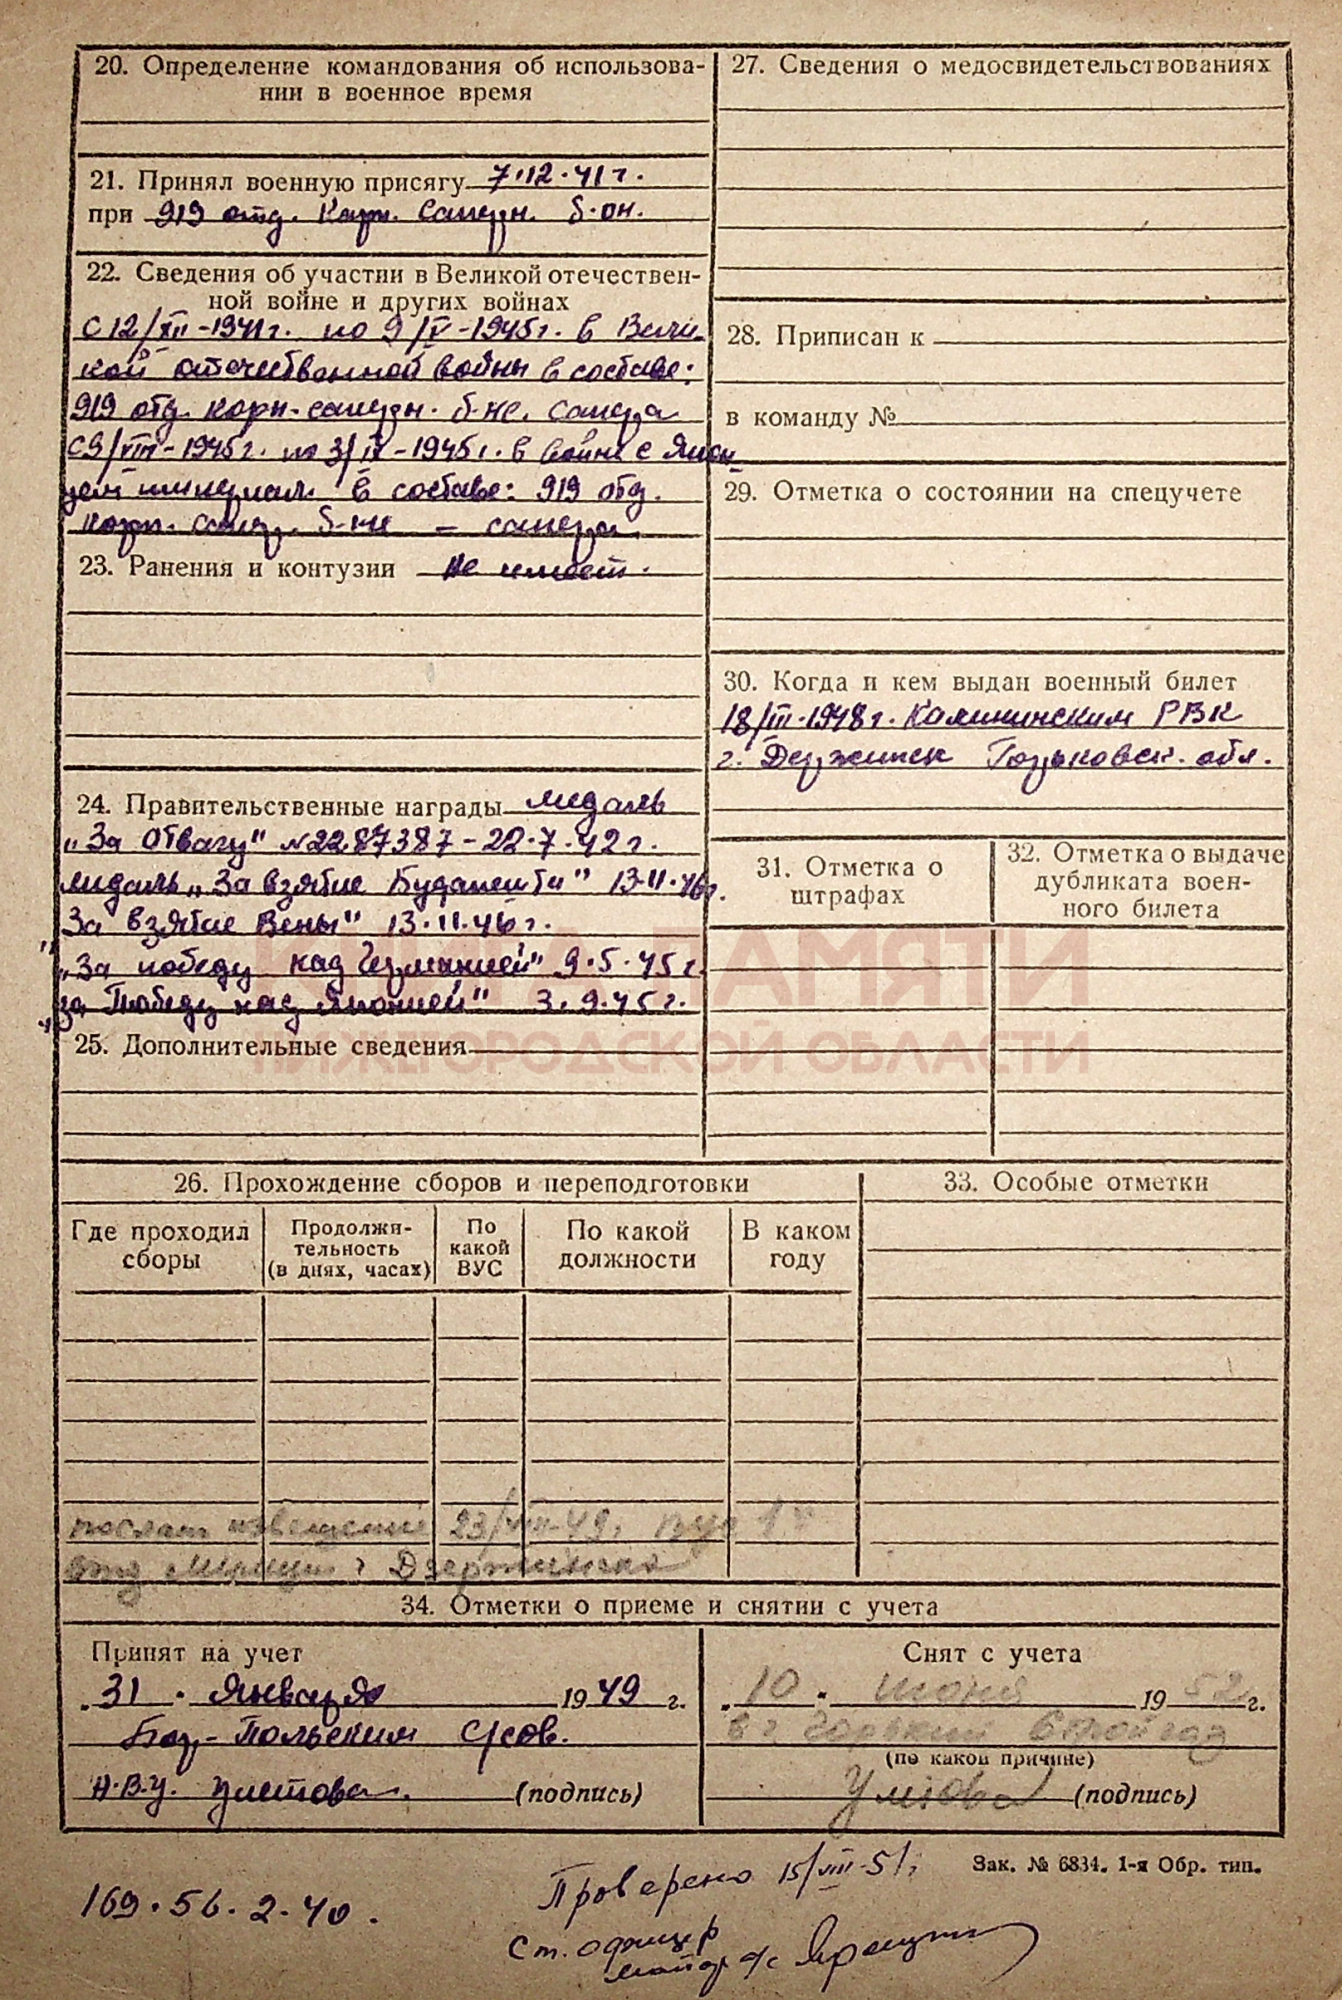 20. Определение командования об использова-
нии в военное время
21. Принял военную присягу 7.12.41 г.
при 919 отд. Корп. Саперн. б-он.
22. Сведения об участии в Великой отечествен-
ной войне и других войнах
С 12/XII-1941г. по 9/V-1945г. в Вели
кой отечественной войны в составе:
919 отд. корп. саперн. б-не. сапера
С 9/VIII-1945г. по 3/IX-1945г. в войне с Япон
империал. в составе: 919 отд.
корп. сапер. б-не – сапера
23. Ранения и контузии Не имеет.
24. Правительственные награды медаль
„За Отвагу" N2287387-22.7.42г.
медаль „За взятие Будапешта" 13.II.46г.
„За взятие Вены" 13.II.46г.
„За победу над Германией" 9.5.45г.
„За Победу над Японией" 3.9.45г.
25. Дополнительные сведения
26. Прохождение сборов и переподготовки
Где проходил
сборы
Продолжи-
тельность
(в днях, часах)
По
какой
ВУС
По какой
должности
В каком
году
послат извещение 23/VIII-49,
отд г Дзержинска
27. Сведения о медосвидетельствованиях
28. Приписан к
в команду №
29. Отметка о состоянии на спецучете
30. Когда и кем выдан военный билет
18/III-1948г. Калининским РВК
г. Дзержинск Горьковск. обл.
31. Отметка о
штрафах
32. Отметка о выдаче
дубликата воен-
ного билета
33. Особые отметки
КНИГА ПАМЯТИ
НИЖЕГОРОДСКОЙ ОБЛАСТИ
34. Отметки о приеме и снятии с учета
Принят на учет
„31" Января 1949 г.
Бор-Польским с/сов.
Н.В.У. (подпись)
Снят с учета
„10" июня 1952г.
в г Горький
(по какой причине)
(подпись)
Зак. № 6834. 1-я Обр. тип.
169.56.2.40.
Проверено 15/VIII-51г.
Ст. офицер
майор а/с